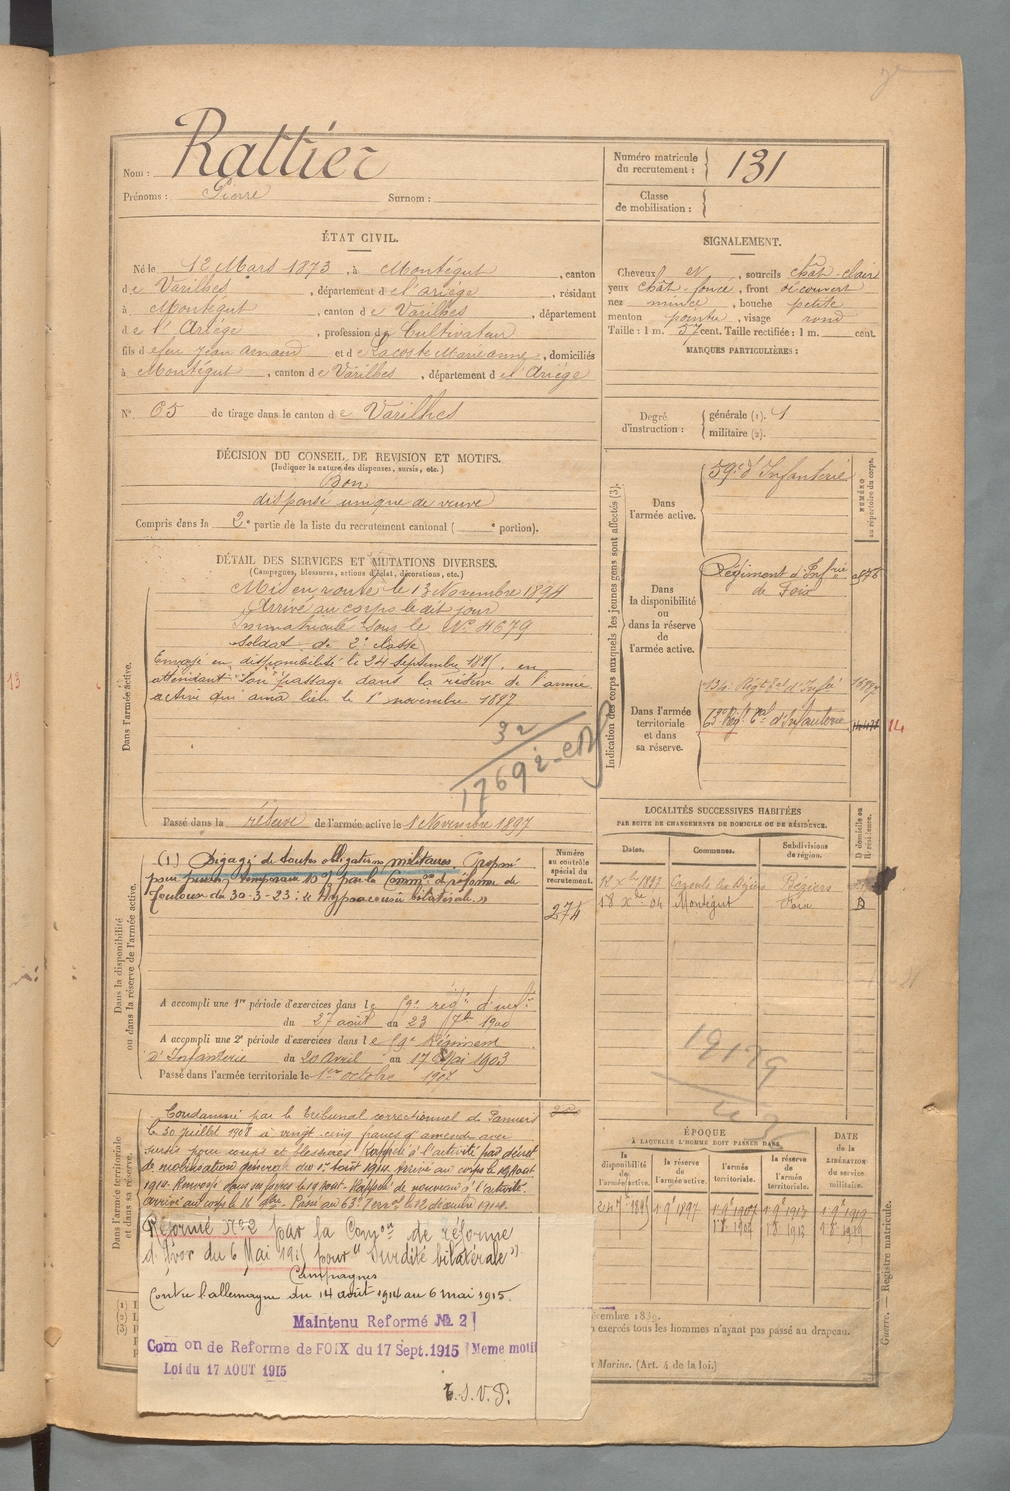 Nom : Rattier
Prénoms : Pierre Surnom :
Numéro matricule du recrutement : 131
Classe de mobilisation :
ÉTAT CIVIL.
Né le 12 Mars 1873, à Montégut, canton
de Varilhes, département de l'ariège, résidant
à Montégut, canton de Varilhes, département
de l'Ariège, profession de Cultivateur
fils de feu Jean arnaud et de Lacoste Marianne, domiciliés
à Montégut, canton de Varilhes, département de l'Ariège
N° 65 de tirage dans le canton de Varilhes
SIGNALEMENT.
Cheveux et, sourcils chât-clair
yeux chât-foncé, front découvert
nez mince, bouche petite
menton pointu, visage rond
Taille : 1 m. 57 cent. Taille rectifiée : 1 m. cent.
MARQUES PARTICULIÈRES :
Degré d'instruction : générale (1). 1
militaire (2).
DÉCISION DU CONSEIL DE REVISION ET MOTIFS.
(Indiquer la nature des dispenses, sursis, etc.)
Bon
dispensé unique de veuve
Compris dans la 2e partie de la liste du recrutement cantonal ( e portion).
DÉTAIL DES SERVICES ET MUTATIONS DIVERSES.
(Campagnes, blessures, actions d'éclat, décorations, etc.)
Dans l'armée active.
Mis en route le 13 Novembre 1894
Arrivé au corps le dit jour
Immatriculé sous le N° 4679
Soldat de 2e classe
Envoyé en disponibilité le 24 Septembre 1895, en
attendant son passage dans la réserve de l'armée
active qui aura lieu le 1er novembre 1897
32
1769
Passé dans la réserve de l'armée active le 1 Novembre 1897
Indication des corps auxquels les jeunes gens sont affectés (3).
NUMÉRO au répertoire du corps.
Dans l'armée active.
59e d'Infanterie
Dans la disponibilité ou dans la réserve de l'armée active.
Régiment d'Infrie
de Foix
Dans l'armée territoriale et dans sa réserve.
134e Régt Tal d'Infie
63e Régt Tal d'Infanterie
14
LOCALITÉS SUCCESSIVES HABITÉES
PAR SUITE DE CHANGEMENTS DE DOMICILE OU DE RÉSIDENCE.
Dates. Communes. Subdivisions de région. D domicile ou R résidence.
Béziers
18 Xbre 04 Montégut Foix D
Dans la disponibilité ou dans la réserve de l'armée active.
Numéro au contrôle spécial du recrutement.
274
(1) Dégagé de toutes obligations militaires. Proposé
pour pension temporaire 10% par la Common de réforme de
Toulouse du 30-3-23 : "Hypoacousie bilatérale"
A accompli une 1re période d'exercices dans le 59e régt d'infie
du 27 août au 23 7bre 1900
A accompli une 2e période d'exercices dans le 59e Régiment
d'Infanterie du 20 avril au 17 Mai 1903
Passé dans l'armée territoriale le 1er octobre 1907
19179
Dans l'armée territoriale et dans sa réserve.
Condamné par le tribunal correctionnel de Pamiers
le 30 Juillet 1908 à vingt-cinq francs d'amende avec
sursis pour coups et blessures. Rappelé à l'activité par décret
de mobilisation générale du 1er août 1914. Arrivé au corps le 14 août
1914. Renvoyé dans ses foyers le 19 août. Rappelé de nouveau à l'activité.
arrivé au corps le 16 9bre. Passé au 63e Terral le 12 décembre 1914.
Réformé N° 2 par la Comon de réforme
du 6 Mai 1915 pour "surdité bilatérale".
Campagnes
Contre l'allemagne du 14 août 1914 au 6 mai 1915.
Maintenu Reformé № 2
Com on de Reforme de FOIX du 17 Sept. 1915 Meme motif
Loi du 17 AOUT 1915
T.S.V.P.
ÉPOQUE
À LAQUELLE L'HOMME DOIT PASSER DANS
la disponibilité de l'armée active. la réserve de l'armée active. l'armée territoriale. la réserve de l'armée territoriale.
DATE DE LA LIBÉRATION du service militaire.
24 7bre 1895 1 9bre 1897 1 9bre 1907 1 9bre 1913 1 9bre 1919
exercés tous les hommes n'ayant pas passé au drapeau.
Marine. (Art. 4 de la loi.)
Guerre. — Registre matricule.